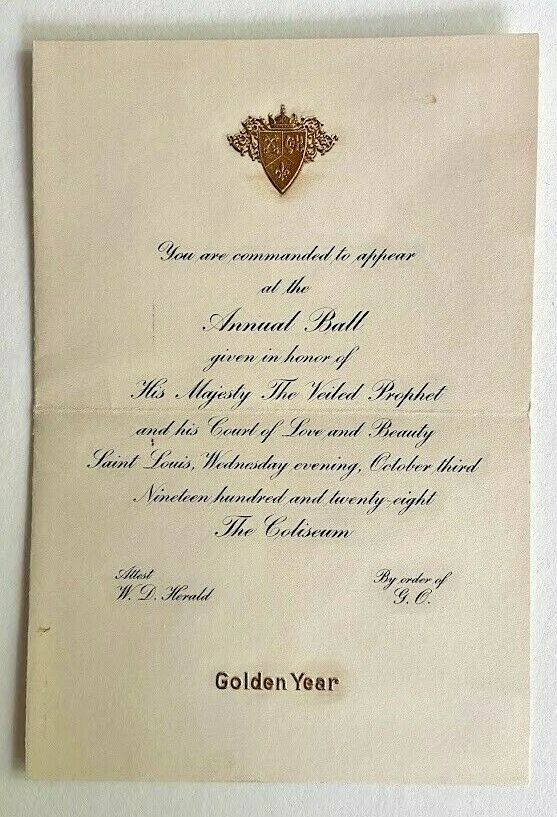 You are commanded to appear
at the
Annual Ball
given in honor of
His Majesty The Veiled Prophet
and his Court of Love and Beauty
Saint Louis, Wednesday evening, October third
Nineteen hundred and twenty-eight
The Coliseum
Attest
W. D. Herald
By order of
G. O.
Golden Year